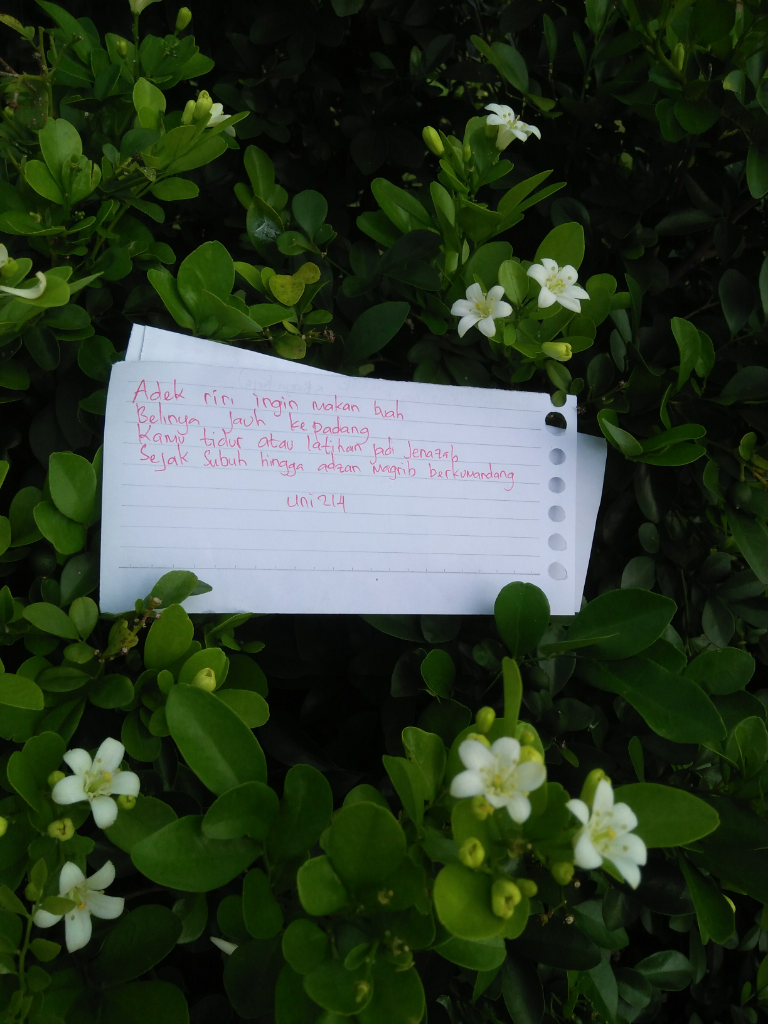 Adek riri ingin makan buah
Belinya jauh ke padang
Kamu tidur atau latihan jadi Jenazah
Sejak Subuh hingga adzan magrib berkumandang
uni214